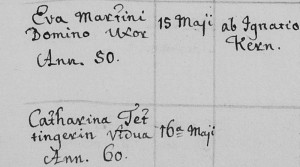 Eva Martini 15 Maji ab Ignatio
Domino Uxor Kern.
Ann. 50.
Catharina Tet
tingerin vidua 16a Maji
Ann. 60.